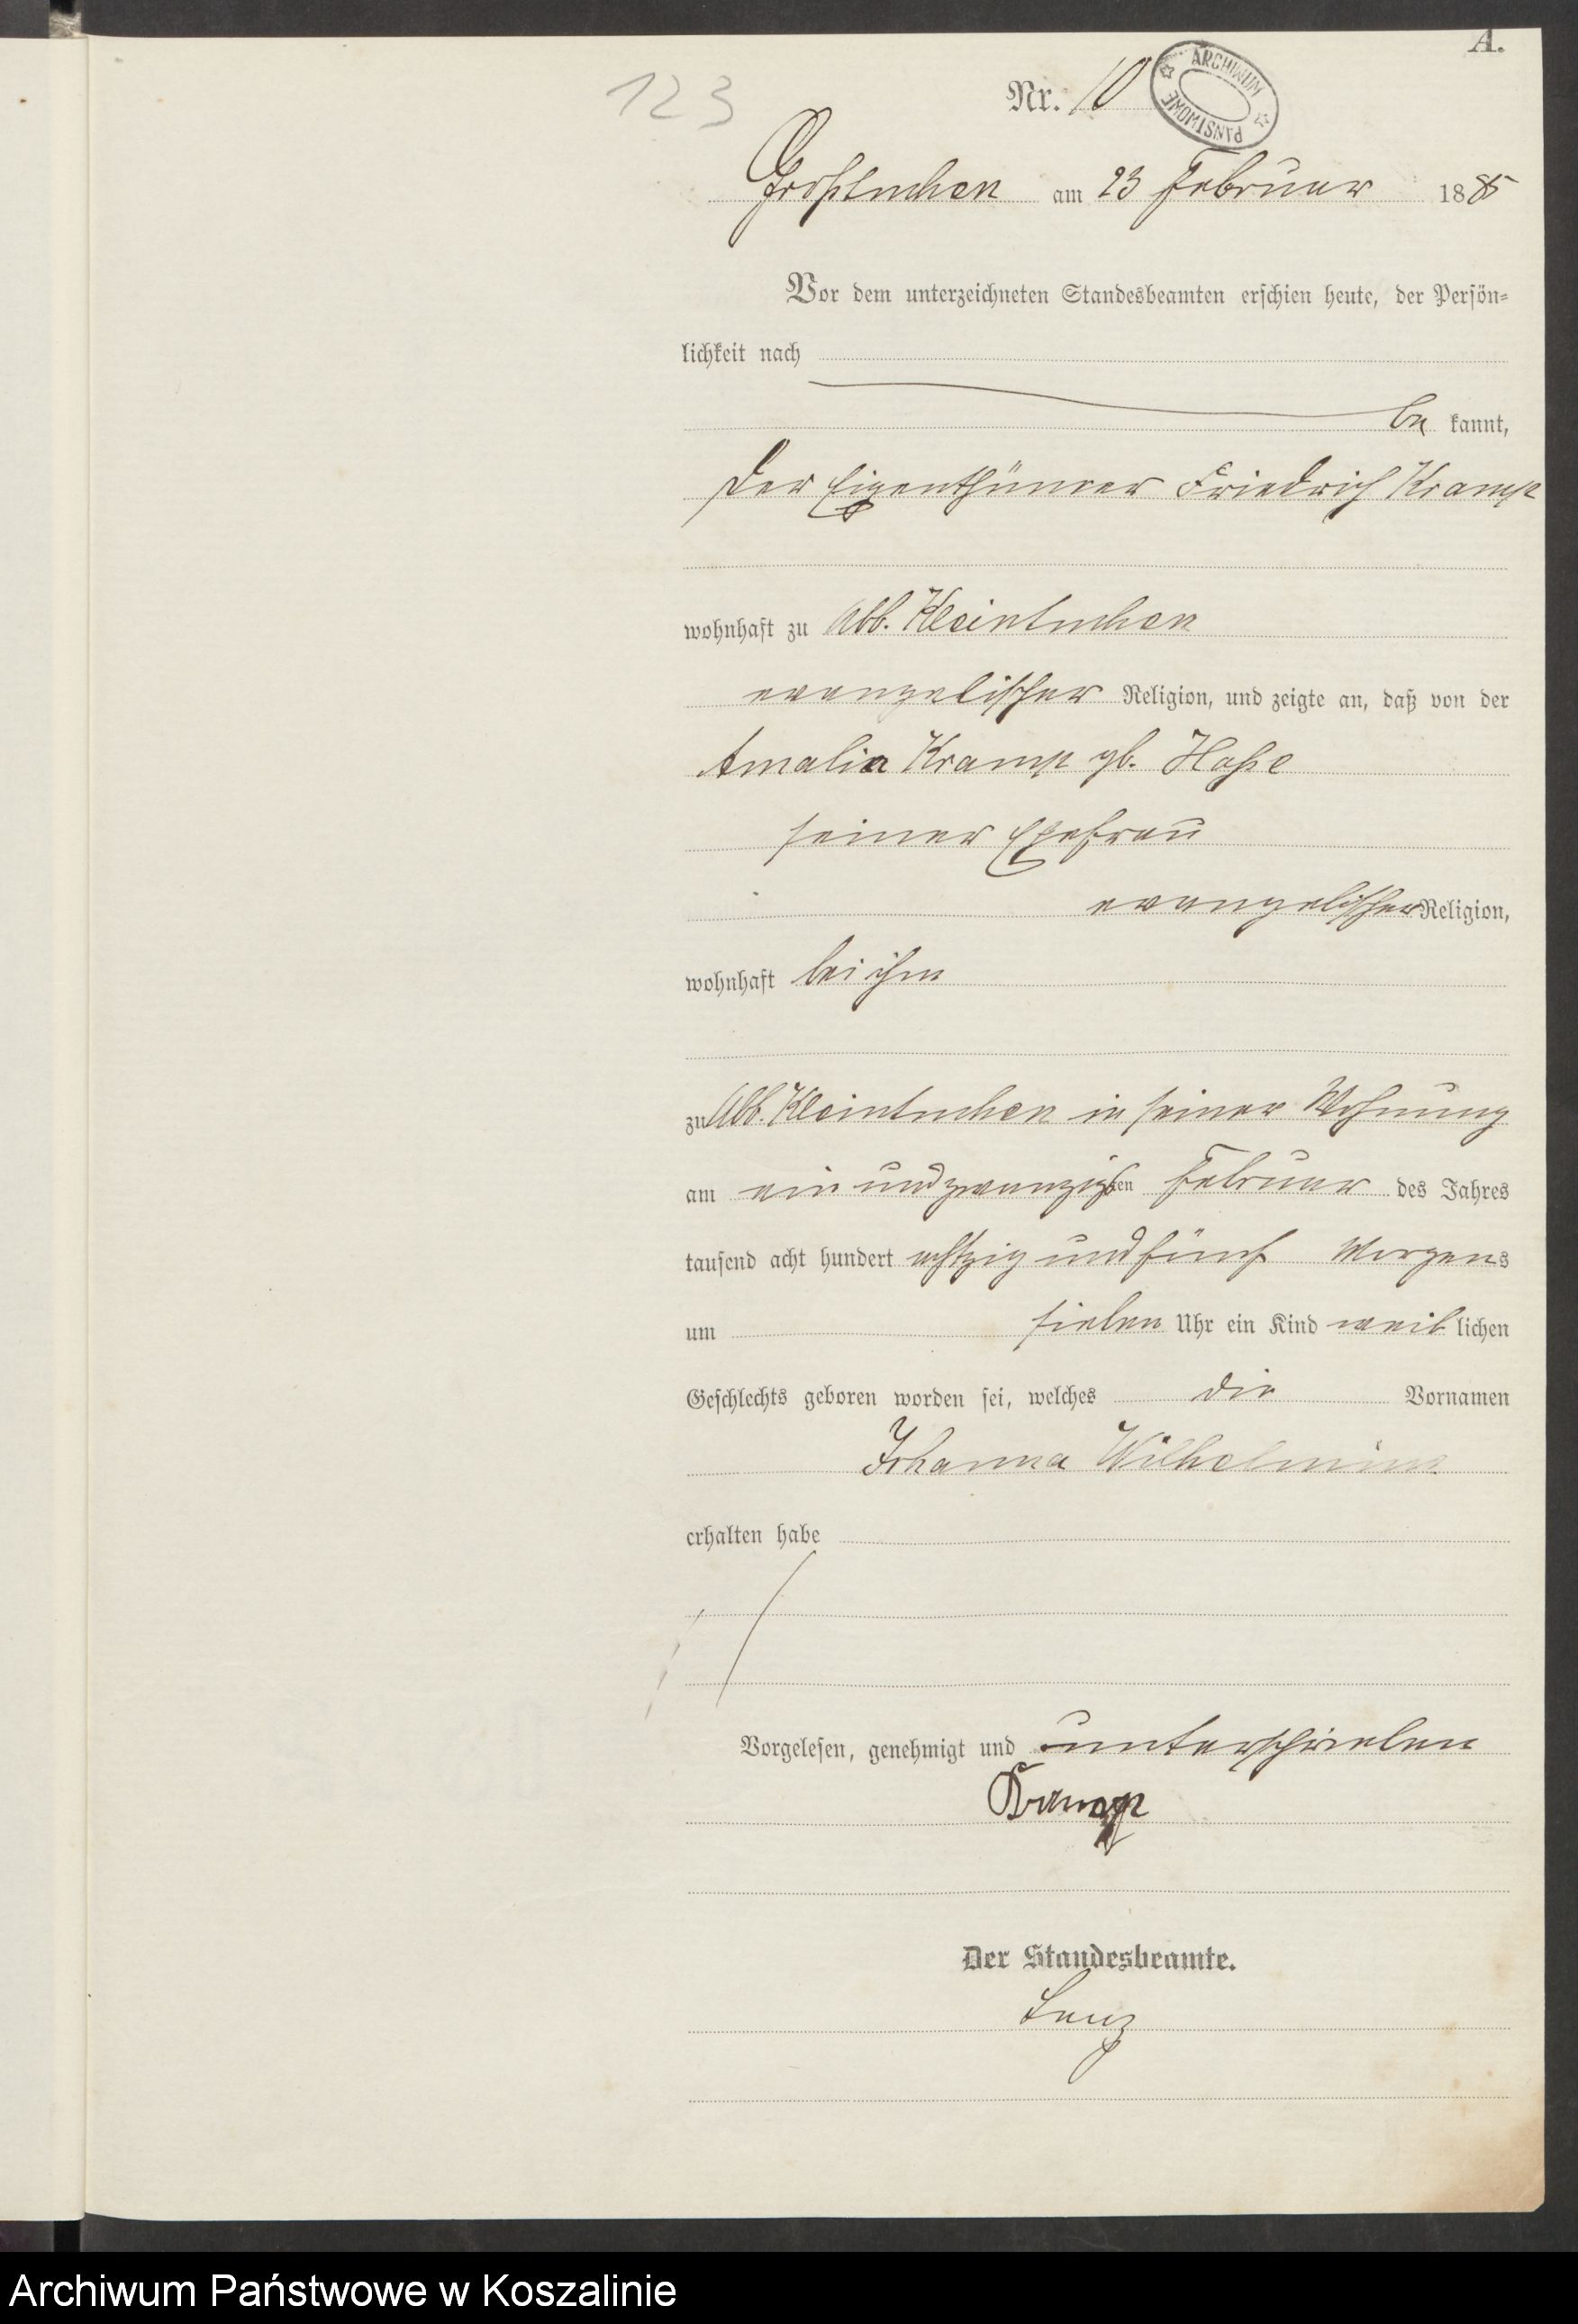 A.
123
Nr. 10
ARCHIWUM PAŃSTWOWE
Großtuchen am 23 Februar 1885
Vor dem unterzeichneten Standesbeamten erschien heute, der Persön-
lichkeit nach
be kannt,
der Eigenthümer Friedrich Kramp
wohnhaft zu Abb. Kleintuchen
evangelischer Religion, und zeigte an, daß von der
Amalia Kramp gb. Haße
seiner Ehefrau
evangelischer Religion,
wohnhaft bei ihm
zu Abb. Kleintuchen in seiner Wohnung
am ein und zwanzigsten Februar des Jahres
tausend acht hundert achtzig und fünf Morgens
um sieben Uhr ein Kind weib lichen
Geschlechts geboren worden sei, welches die Vornamen
Johanna Wilhelmine
erhalten habe
Vorgelesen, genehmigt und unterschrieben
Kramp
Der Standesbeamte.
Archiwum Państwowe w Koszalinie